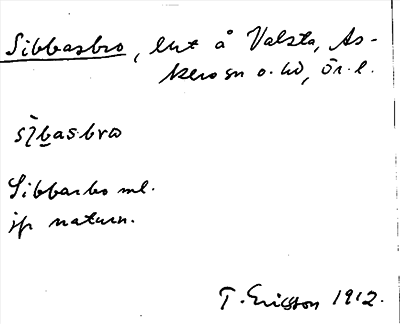 Sibbasbro, lht å Valsta, As-
kers sn o. hd, Ör. l.
sìbasbro
Sibbarbo ml.
jfr naturn.
T. Ericsson 1912.